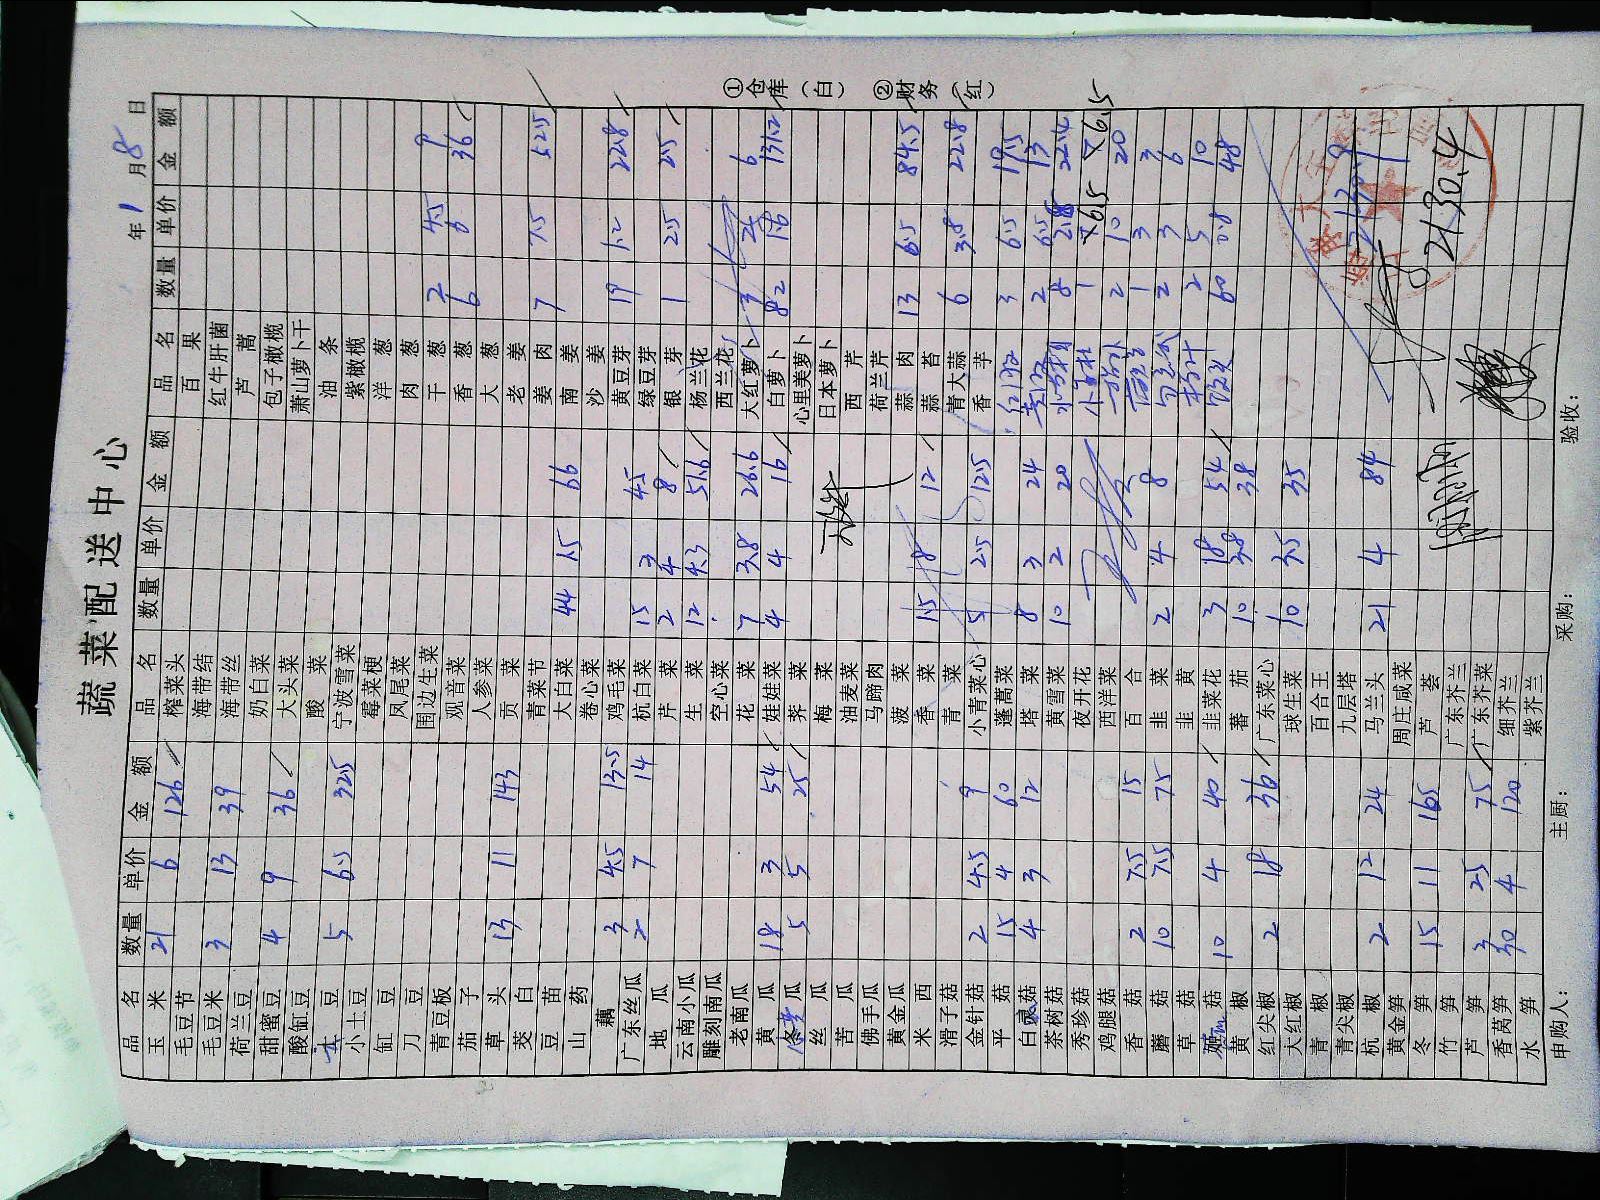 蔬菜配送中心
年 1 月 8 日
品名 数量 单价 金额 品名 数量 单价 金额 品名 数量 单价 金额
玉米 21 6 126 榨菜头 百果
毛豆节 海带结 红牛肝菌
毛豆米 3 13 39 海带丝 芦蒿
荷兰豆 奶白菜 包子橄榄
甜蜜豆 4 9 36 大头菜 萧山萝卜干
酸缸豆 酸菜 油条
土豆 5 6.5 32.5 宁波雪菜 紫橄榄
小土豆 霉菜梗 洋葱
缸豆 凤尾菜 肉葱
刀豆 围边生菜 干葱 2 4.5 9
青豆板 观音菜 香葱 6 6 36
茄子 人参菜 大葱
草头 13 11 143 贡菜 老姜
茭白 青菜节 姜肉 7 7.5 52.5
豆苗 大白菜 44 1.5 66 南姜
山药 卷心菜 沙姜
藕 3 4.5 13.5 鸡毛菜 黄豆芽 19 1.2 22.8
广东丝瓜 2 7 14 杭白菜 15 3 45 绿豆芽
地瓜 芹菜 2 4 8 银芽 1 2.5 2.5
云南小瓜 生菜 12 4.3 51.6 杨兰花
雕刻南瓜 空心菜 西兰花
老南瓜 花菜 7 3.8 26.6 大红萝卜 6
黄瓜 18 3 54 娃娃菜 4 4 16 白萝卜 82 1.6 131.2
5 5 25 荠菜 心里美萝卜
丝瓜 梅菜 日本萝卜
苦瓜 油麦菜 西芹
佛手瓜 马蹄肉 荷兰芹
黄金瓜 菠菜 蒜肉 13 6.5 84.5
米西 香菜 1.5 8 12 蒜苔
滑子菇 青菜 青大蒜 6 3.8 22.8
金针菇 2 4.5 9 小青菜心 5 2.5 12.5 香芋
平菇 15 4 60 蓬蒿菜 3 6.5 19.5
白灵菇 4 3 12 塔菜 8 3 24 2 6.5 13
茶树菇 黄雪菜 10 2 20 8 2.8 22.4
秀珍菇 夜开花 1 6.5
鸡腿菇 西洋菜 2 10 20
香菇 2 7.5 15 百合 1 3 3
蘑菇 10 7.5 75 韭菜 2 4 8 2 3 6
草菇 韭黄 2 5 10
菇 10 4 40 韭菜花 3 18 54 60 0.8 48
黄椒 蕃茄 10 3.8 38
红尖椒 2 18 36 广东菜心
大红椒 球生菜 10 3.5 35
青椒 百合王
青尖椒 九层塔
杭椒 2 12 24 马兰头 21 4 84
黄金笋 周庄咸菜
冬笋 15 11 165 芦荟
竹笋 广东芥兰
芦笋 3 25 75 广东芥菜
香莴笋 30 4 120 细芥兰
水笋 紫芥兰
2130.4
申购人： 主厨： 采购： 验收：
①仓库（白） ②财务（红）